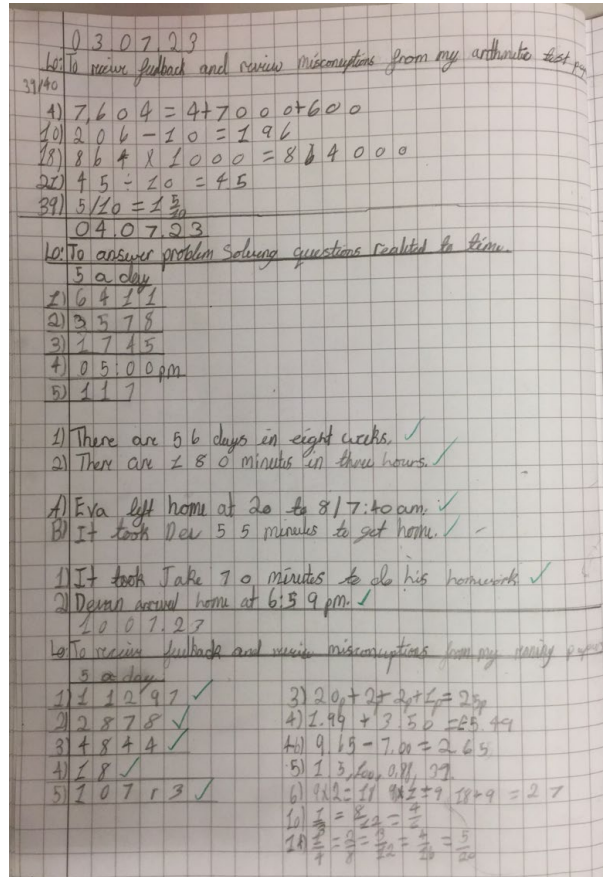 03.07.23
Lo: To recive feedback and review misconceptions from my arithmetic test
39/40
4) 7,604 = 4+7000+600
10) 206 - 10 = 196
18) 864 x 1000 = 864000
21) 45 ÷ 10 = 45
39) 5/10 = 1 5/10
04.07.23
Lo: To answer problem Solving questions realited to time.
5 a day
1) 6411
2) 3578
3) 1745
4) 05:00 pm
5) 117
1) There are 56 days in eight weeks. ✓
2) There are 180 minutes in three hours. ✓
A) Eva left home at 20 to 8/7:40 am. ✓
B) It took Dev 55 minutes to get home. ✓
1) It took Jake 70 minutes to do his homework ✓
2) Devan arrived home at 6:59 pm. ✓
10.07.23
Lo: To recive feedback and review misconceptions from my
5 a day
1) 11297 ✓
2) 2878 ✓
3) 4844 ✓
4) 18 ✓
5) 107 r 3 ✓
3) 20p + 2+ 2p + 1p = 25p
4) 1.99 + 3.50 = £5.49
4b) 9.65 - 7.00 = 265
5) 1.3, 0.81, 39
6) 9x2=18 9x1=9 18+9 = 27